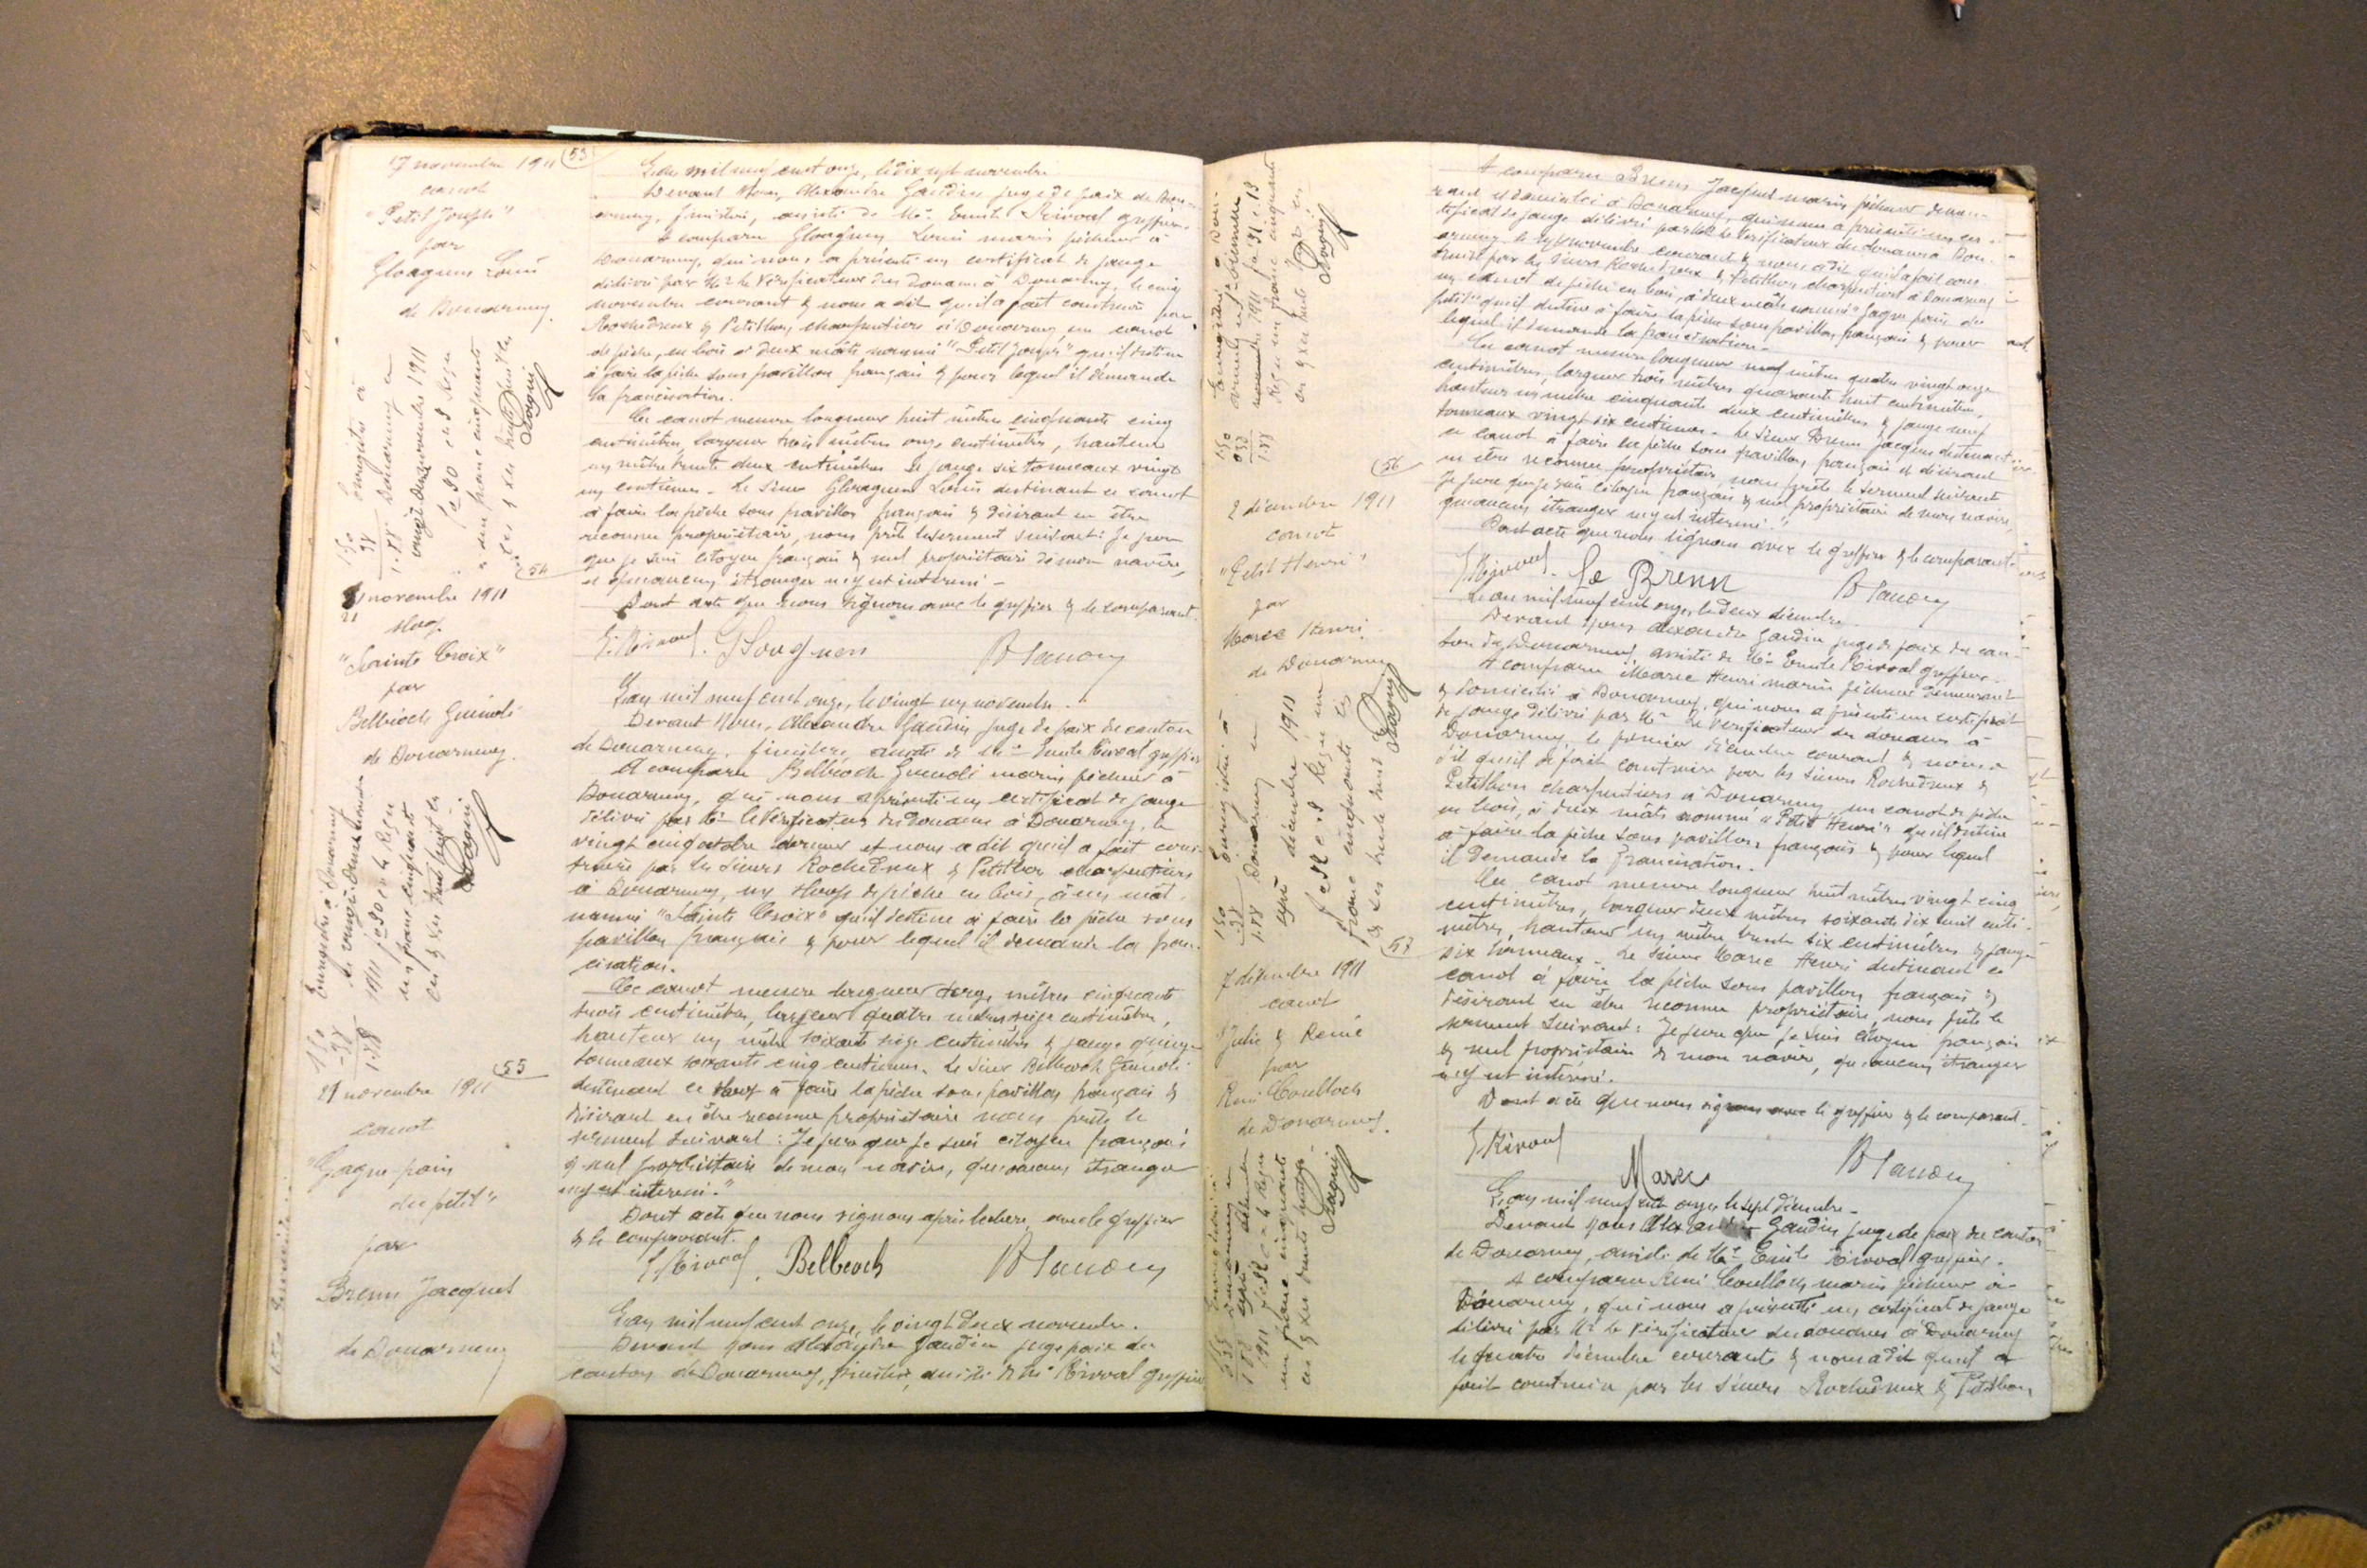 17 novembre 1911
canot
"Petit Joseph"
par
Gloaguen Louis
de Douarnenez.
53
L'an mil neuf cent onze, le dix sept novembre
Devant Nous, Alexandre Gaudin juge de paix de Douar-
nenez, finistère, assisté de Me Emile Rivoal greffier.
A comparu Gloaguen Louis marin pêcheur à
Douarnenez, qui nous a présenté un certificat de jauge
délivré par Mr le Vérificateur des Douanes à Douarnenez, le cinq
novembre courant & nous a dit qu'il a fait construire par
Rochedreux & Petitbon, charpentiers à Douarnenez un canot
de pêche, en bois à deux mâts nommé "Petit Joseph" qu'il destine
à faire la pêche sous pavillon français & pour lequel il demande
la francisation.
Ce canot mesure longueur huit mètres cinquante cinq
centimètres, largeur trois mètres onze centimètres, hauteur
un mètre trente deux centimètres & jauge six tonneaux vingt
un centièmes. Le sieur Gloaguen Louis destinant ce canot
à faire la pêche sous pavillon français & désirant en être
reconnu propriétaire, nous prête le serment suivant: Je jure
que je suis citoyen français & seul propriétaire de mon navire,
et qu'aucun étranger n'y est intéressé -
Dont acte que nous signons avec le greffier & le comparant.
E. Rivoal. Gloaguen A Gaudin
Enregistré à
Douarnenez le
vingt deux novembre 1911
fo 90 c 8 Reçu
un franc cinquante
1.50
38
1.88
54
21 novembre 1911
sloop
"Sainte Croix"
par
Belbéoch Guénolé
de Douarnenez.
L'an mil neuf cent onze, le vingt un novembre.
Devant Nous, Alexandre Gaudin juge de paix du canton
de Douarnenez, finistère, assisté de Me Emile Rivoal greffier
A comparu Belbéoch Guénolé marin pêcheur à
Douarnenez, qui nous a présenté un certificat de jauge
délivré par Mr le Vérificateur des Douanes à Douarnenez, le
vingt cinq octobre dernier et nous a dit qu'il a fait cons-
truire par les sieurs Rochedreux & Petitbon charpentiers
à Douarnenez, un sloop de pêche en bois, à un mât.
nommé "Sainte Croix" qu'il destine à faire la pêche sous
pavillon français & pour lequel il demande la fran-
cisation.
Ce canot mesure longueur onze mètres cinquante
trois centimètres, largeur quatre mètres seize centimètres,
hauteur un mètre soixante seize centimètres & jauge quinze
tonneaux soixante cinq centièmes. Le sieur Belbéoch Guénolé
destinant ce sloop à faire la pêche sous pavillon français &
désirant en être reconnu propriétaire nous prête le
serment suivant: Je jure que je suis citoyen français
& seul propriétaire de mon navire, qu'aucun étranger
n'y est intéressé."
Dont acte que nous signons après lecture, avec le greffier
& le comparant.
E. Rivoal. Belbeoch A Gaudin
Enregistré à Douarnenez
1911 fo 90 Reçu
un franc cinquante
1.50
-38
1.88
55
21 novembre 1911
canot
"Gagne-pain
du petit"
par
Brenn Jacques
de Douarnenez
L'an mil neuf cent onze, le vingt deux novembre.
Devant nous Alexandre Gaudin juge paix du
canton de Douarnenez, finistère, assisté de Me Rivoal greffier
A comparu Brenn Jacques marin pêcheur demeu-
rant et domicilié à Douarnenez, qui nous a présenté un cer-
tificat de jauge délivré par Mr le Vérificateur des douanes à Dou-
arnenez le sept novembre courant & nous a dit qu'il a fait cons-
truire par les sieurs Rochedreux & Petitbon charpentiers à Douarnenez
un canot de pêche en bois, à deux mâts nommé "Gagne pain du
petit" qu'il destine à faire la pêche sous pavillon français & pour
lequel il demande la francisation.
Ce canot mesure longueur neuf mètres quatre vingt onze
centimètres, largeur trois mètres quarante huit centimètres,
hauteur un mètre cinquante deux centimètres & jauge neuf
tonneaux vingt six centièmes. Le sieur Brenn Jacques destinant
ce canot à faire la pêche sous pavillon français et désirant
en être reconnu propriétaire, nous prête le serment suivant
Je jure que je suis citoyen français & seul propriétaire de mon navire,
qu'aucun étranger n'y est intéressé."
Dont acte que nous signons avec le greffier & le comparant
E Rivoal. Le Brenn A Gaudin
1.50
0.38
1.88
56
2 décembre 1911
canot
"Petit Henri"
par
Marec Henri
de Douarnenez
L'an mil neuf cent onze, le deux décembre.
Devant nous Alexandre Gaudin juge de paix du can-
ton de Douarnenez, assisté de Me Emile Rivoal greffier.
A comparu Marec Henri marin pêcheur demeurant
& domicilié à Douarnenez, qui nous a présenté un certificat
de jauge délivré par Mr le Vérificateur des douanes à
Douarnenez, le premier décembre courant & nous a
dit qu'il a fait construire par les sieurs Rochedreux &
Petitbon charpentiers à Douarnenez, un canot de pêche
en bois, à deux mâts nommé "Petit Henri" qu'il destine
à faire la pêche sous pavillon français & pour lequel
il demande la francisation.
Ce canot mesure longueur huit mètres vingt cinq
centimètres, largeur deux mètres soixante dix huit centi-
mètres, hauteur un mètre trente six centimètres & jauge
six tonneaux. Le sieur Marec Henri destinant ce
canot à faire la pêche sous pavillon français &
désirant en être reconnu propriétaire, nous prête le
serment suivant: Je jure que je suis citoyen français
& seul propriétaire de mon navire, qu'aucun étranger
n'y est intéressé.
Dont acte que nous signons avec le greffier & le comparant.
E Rivoal Marec A Gaudin
Enregistré à
Douarnenez le
sept décembre 1911
fo 92 c 8 Reçu un
franc cinquante
1.50
-38
1.88
57
7 décembre 1911
canot
"Julie & René
par
René Coulloch
de Douarnenez.
L'an mil neuf cent onze le sept décembre.
Devant nous Alexandre Gaudin juge de paix du canton
de Douarnenez, assisté de Me Emile Rivoal greffier.
A comparu René Coulloch marin pêcheur à
Douarnenez, qui nous a présenté un certificat de jauge
délivré par Mr le Vérificateur des douanes à Douarnenez
le quatre décembre courante & nous a dit qu'il a
fait construire par les sieurs Rochedreux & Petitbon